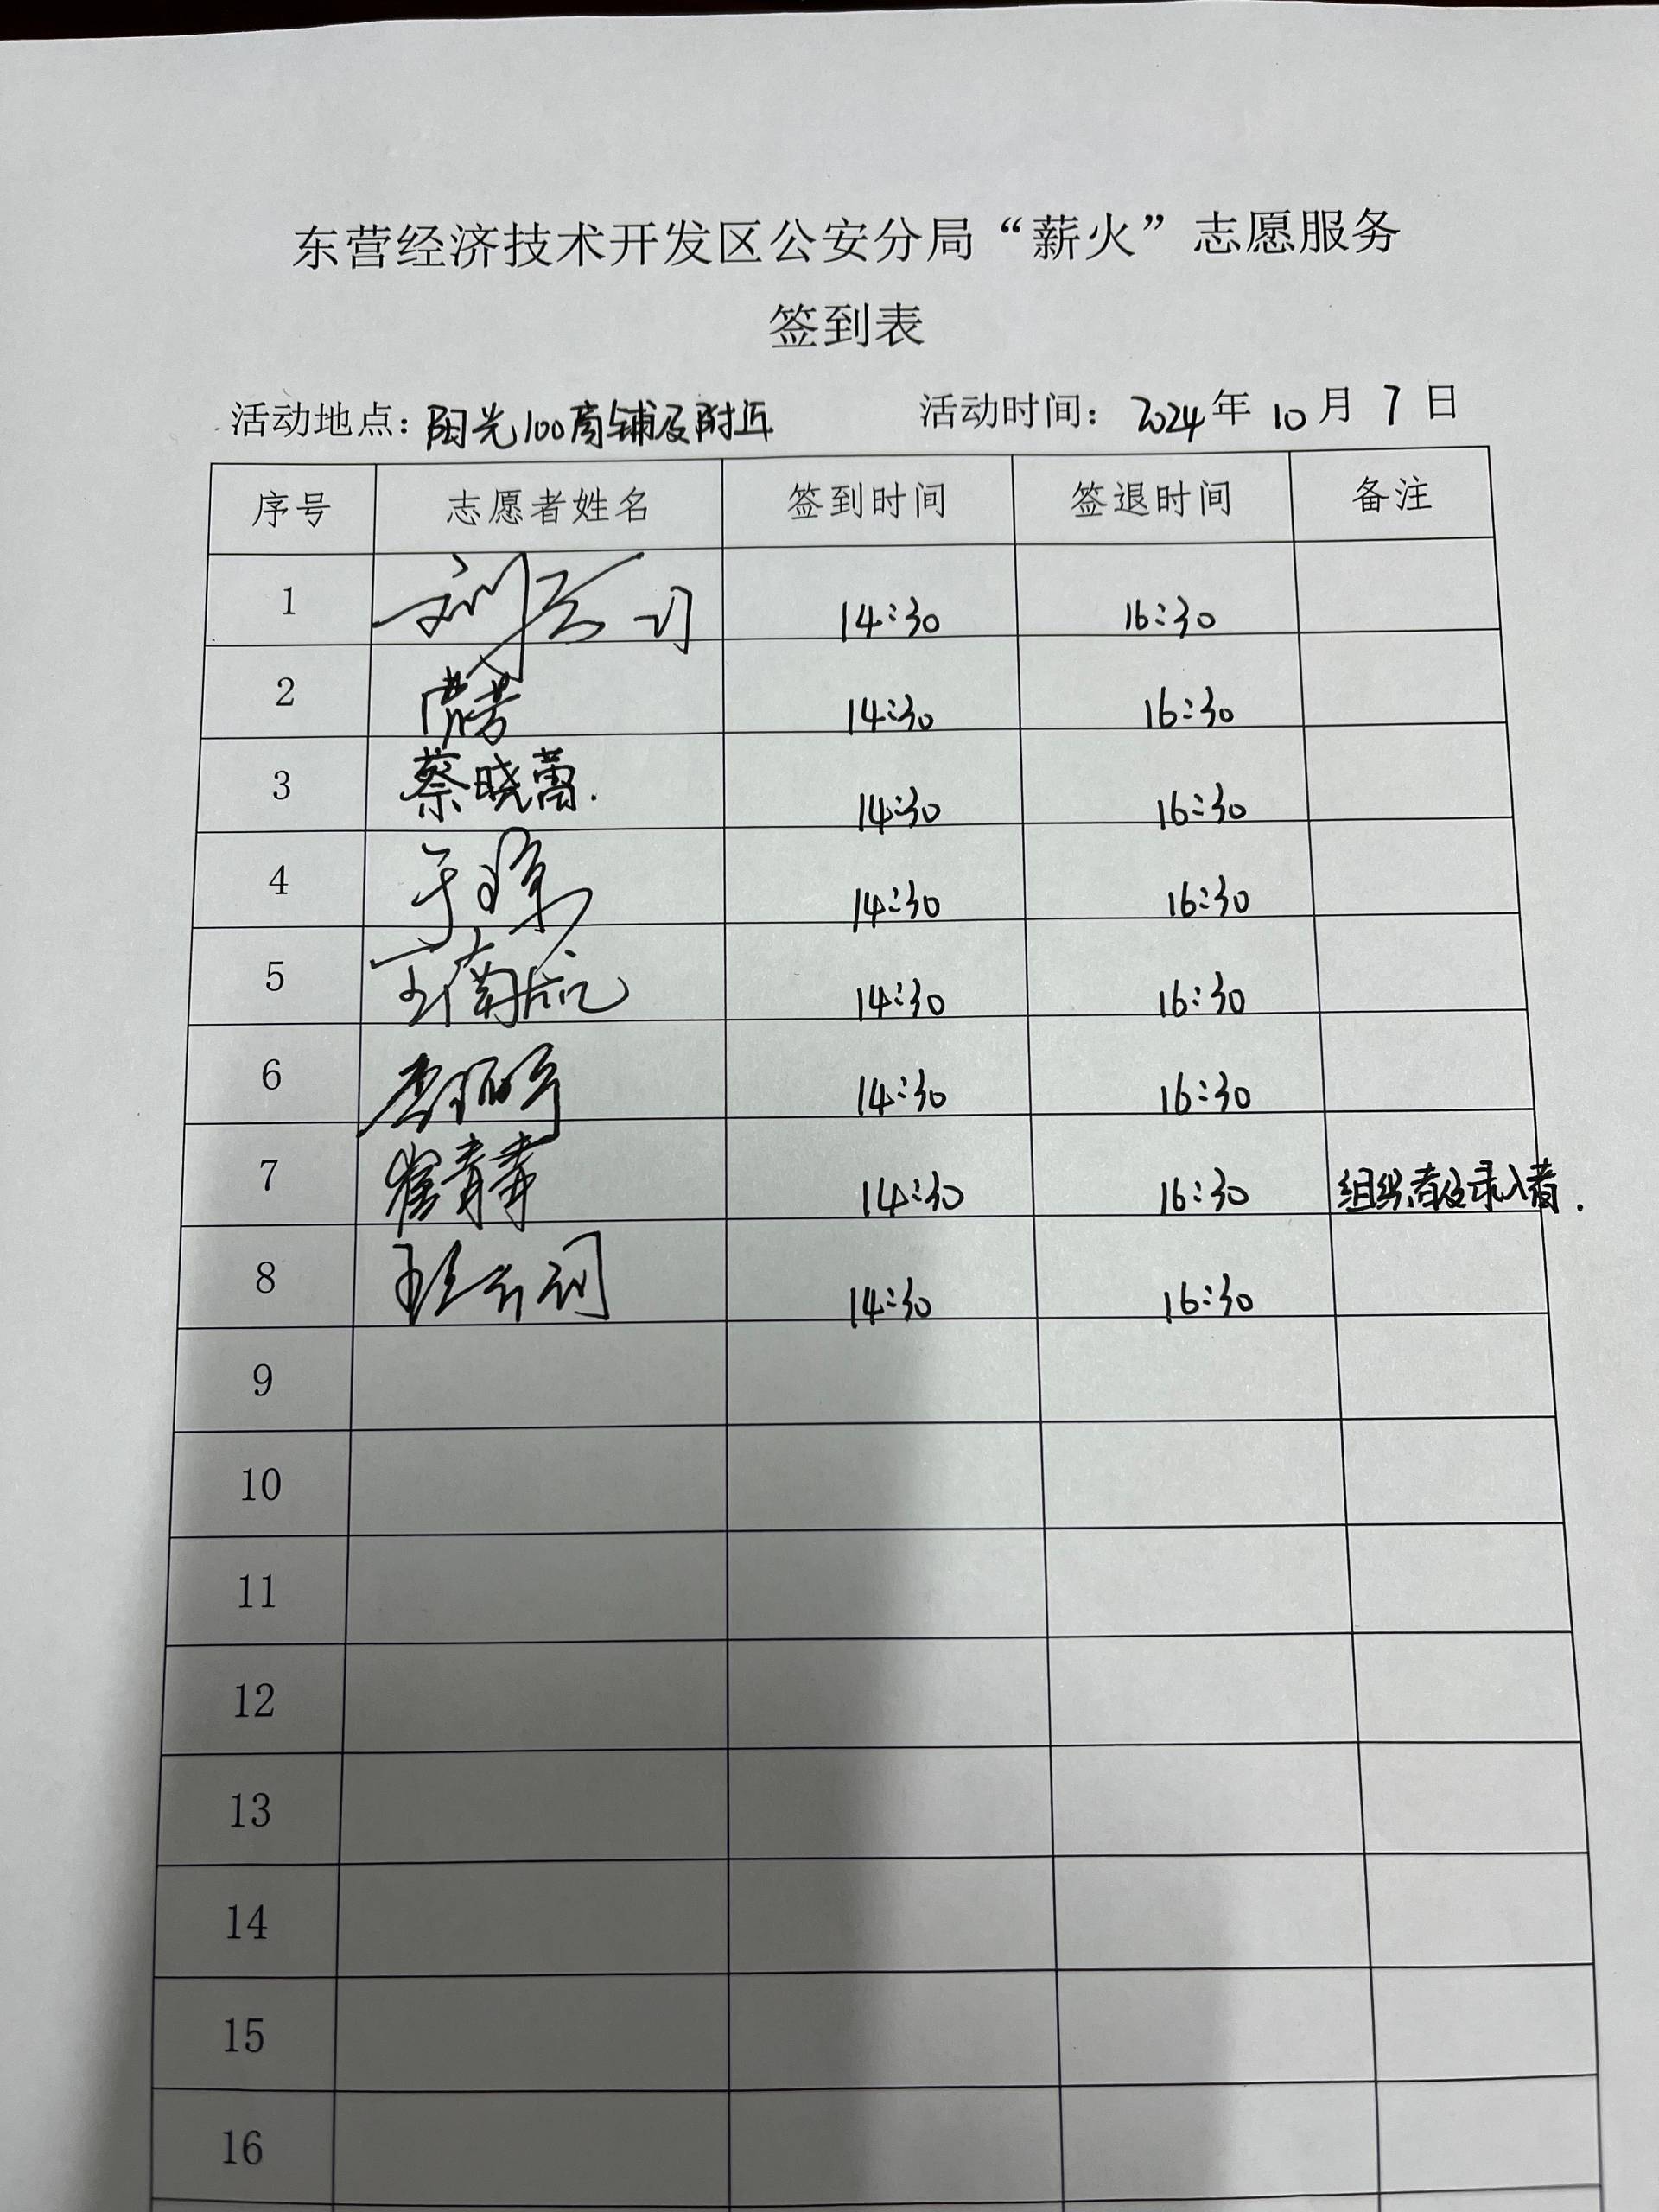 东营经济技术开发区公安分局“薪火”志愿服务
签到表
活动地点：阳光100商铺及附近 活动时间：2024年10月7日
序号 志愿者姓名 签到时间 签退时间 备注
1 14:30 16:30
2 14:30 16:30
3 蔡晓蕾. 14:30 16:30
4 14:30 16:30
5 14:30 16:30
6 14:30 16:30
7 崔青青 14:30 16:30 组织者及录入者.
8 14:30 16:30
9
10
11
12
13
14
15
16